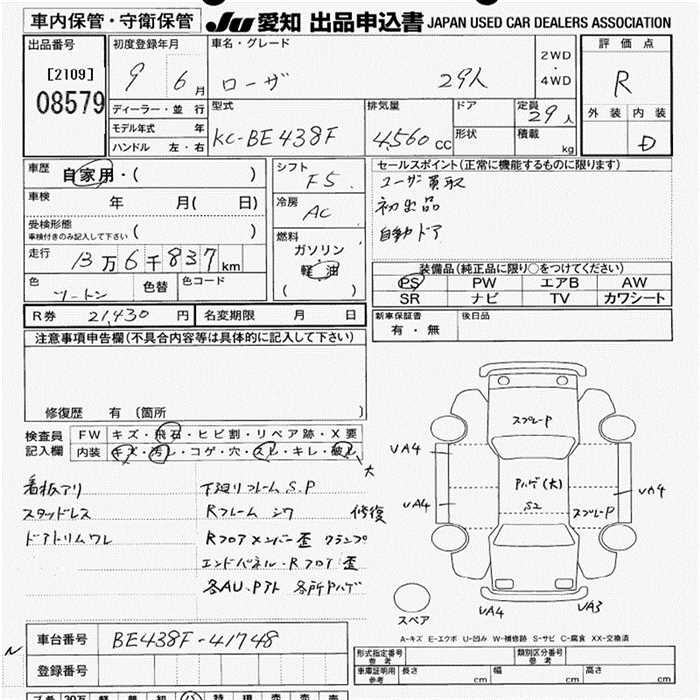 車内保管・守衛保管
JU 愛知 出品申込書 JAPAN USED CAR DEALERS ASSOCIATION
出品番号
[2109]
08579
初度登録年月
9 6月
車名・グレード
ローザ 29人
2WD
・
4WD
評価点
R
外装 内装
D
ディーラー・並行
モデル年式 年
ハンドル 左・右
型式
KC-BE438F
排気量
4,560 CC
ドア
形状
定員
29人
積載
kg
車歴 自家用・( )
車検 年 月( 日)
受検形態
車検付きのみ記入して下さい ( )
走行 13万6千837km
色
ツートン
色替
色コード
シフト
F5
冷房
AC
燃料
ガソリン・
軽油
( )
セールスポイント(正常に機能するものに限ります)
ユーザー買取
初出品
自動ドア
装備品(純正品に限り○をつけてください)
PS PW エアB AW
SR ナビ TV カワシート
新車保証書
有・無
後日品
R券 21,430円 名変期限 月 日
注意事項申告欄(不具合内容等は具体的に記入して下さい)
修復歴 有 〔箇所 〕
検査員
記入欄
FW キズ・飛石・ヒビ割・リペア跡・X要
内装 キズ・汚レ・コゲ・穴・スレ・キレ・破レ 大
看板アリ 下廻りフレームS.P
スタッドレス Rフレーム シワ 修復
ドアトリムワレ Rフロアメンバー歪 クランプ
エンドパネル・Rフロア歪
各AU.Pアト 各所Pハゲ
スプレーP
UA4
UA4
Pハゲ(大)
S2
スプレーP
UA4
UA4
UA3
スペア
A-キズ E-エクボ U-凹み W-補修跡 S-サビ C-腐食 XX-交換済
車台番号 BE438F-41748
登録番号
形式指定番号
参考
類別区分番号
参考
車庫証明用
参考
長さ cm 幅 cm 高さ cm